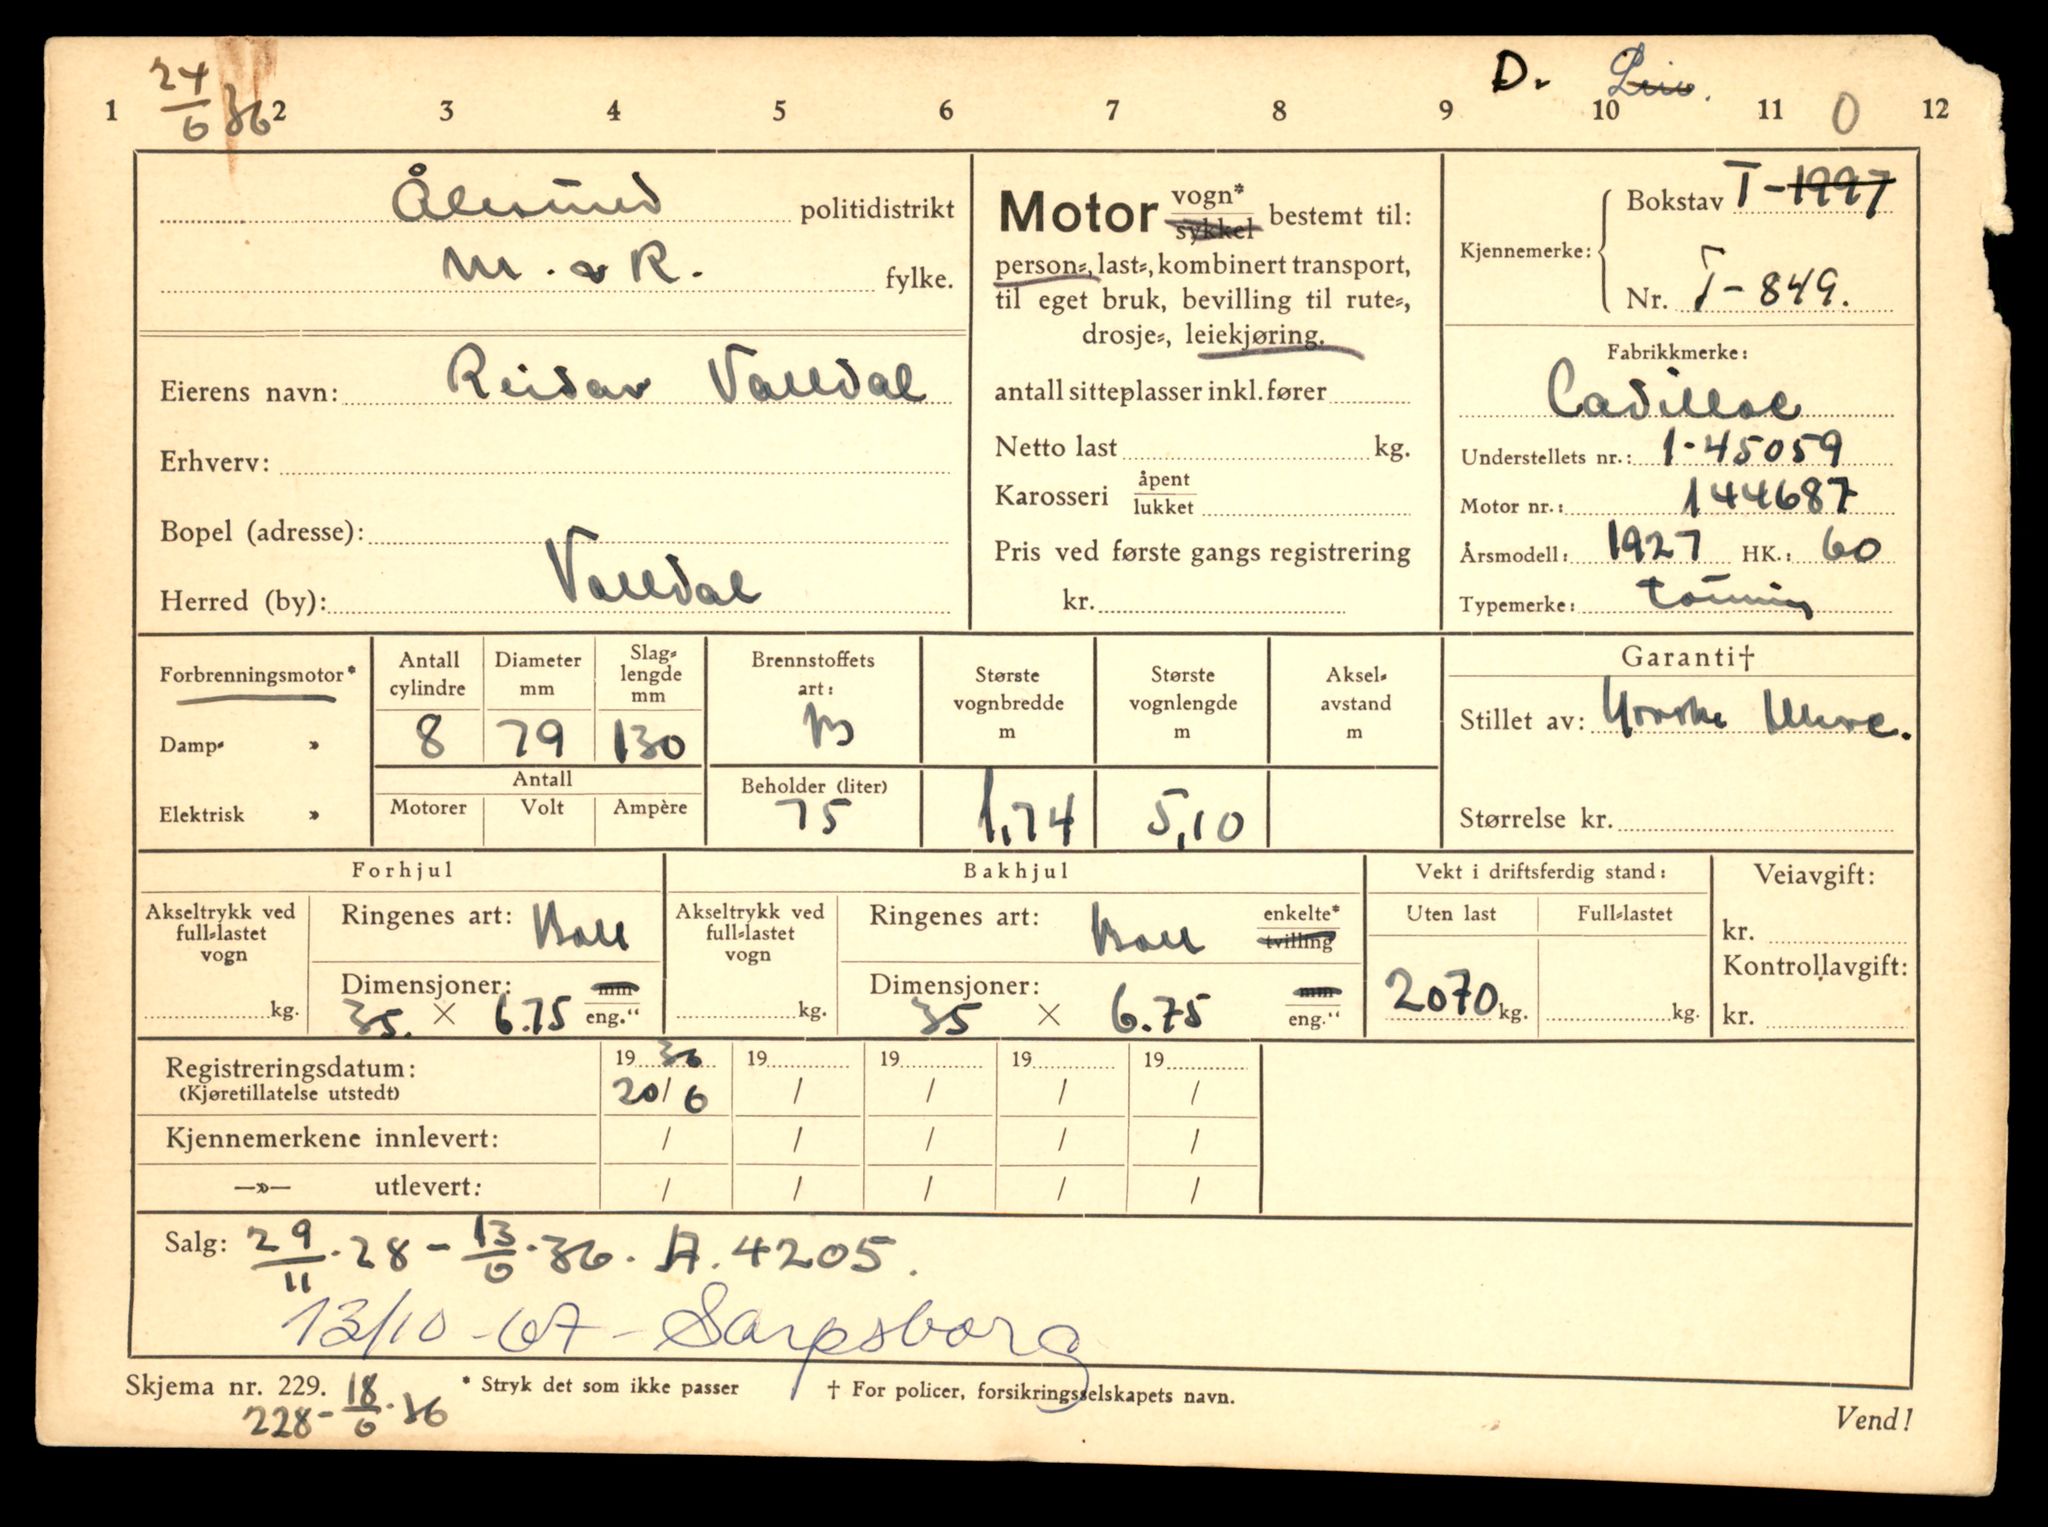 24/6 36
D. Priv.
1 2 3 4 5 6 7 8 9 10 11 0 12
Ålesund politidistrikt
M. & R. fylke.
Eierens navn: Reidar Valldal
Erhverv:
Bopel (adresse):
Herred (by): Valldal
Motor vogn* sykkel bestemt til:
person=, last=, kombinert transport,
til eget bruk, bevilling til rute=,
drosje=, leiekjøring.
antall sitteplasser inkl. fører
Netto last kg.
Karosseri åpent lukket
Pris ved første gangs registrering
kr.
Kjennemerke: Bokstav T-1997
Nr. T-849.
Fabrikkmerke:
Cadillac
Understellets nr.: 1-45059
Motor nr.: 144687
Årsmodell: 1927 HK.: 60
Typemerke: touring
Forbrenningsmotor*
Damp= »
Elektrisk »
Antall cylindre
8
Diameter mm
79
Slag=
lengde
mm
130
Antall
Motorer Volt Ampère
Brennstoffets
art:
B
Beholder (liter)
75
Største
vognbredde
m
1,74
Største
vognlengde
m
5,10
Aksel=
avstand
m
Garanti†
Stillet av: Norske
Størrelse kr.
Forhjul
Akseltrykk ved
full=lastet
vogn
kg.
Ringenes art: Ball
Dimensjoner: mm
35. × 6.75 eng.“
Bakhjul
Akseltrykk ved
full=lastet
vogn
kg.
Ringenes art: Ball enkelte* tvilling
Dimensjoner: mm
35 × 6.75 eng.“
Vekt i driftsferdig stand:
Uten last Full=lastet
2070 kg. kg.
Veiavgift:
kr.
Kontrollavgift:
kr.
Registreringsdatum: 19 36 19 19 19 19
(Kjøretillatelse utstedt) 20/6 / / / /
Kjennemerkene innlevert: / / / / /
—»— utlevert: / / / / /
Salg: 29/11.28 - 13/6.36. A. 4205.
13/10-67-Sarpsborg
Skjema nr. 229. * Stryk det som ikke passer † For policer, forsikringsselskapets navn.
228-18/6.36
Vend!